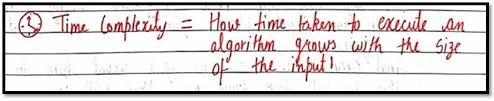 ③ Time Complexity = How time taken to execute an
algorithm grows with the size
of the input!